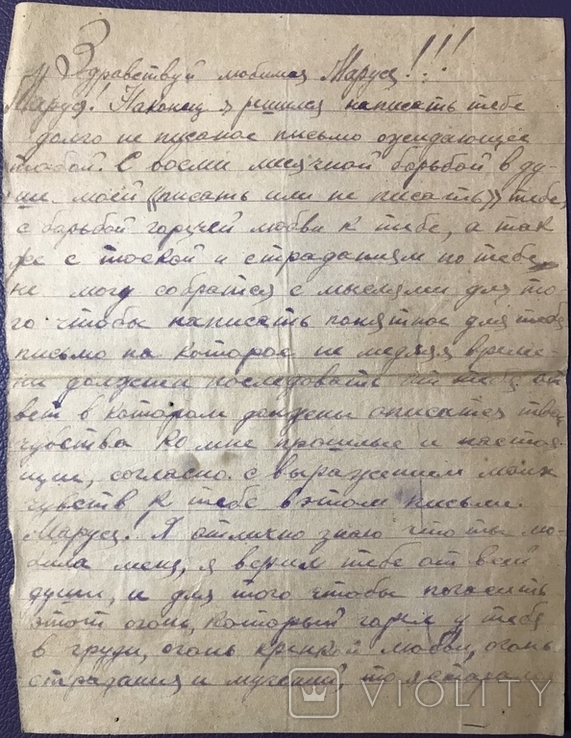 Здравствуй любимая Маруся!!!
Маруся! Наконец я решился написать тебе
долго не писаное письмо ожидающее
тобой. С восми месячной борьбой в ду-
ше моей "писать или не писать" тебе,
с борьбой горячей любви к тебе, а так
же с тоской и страданиям по тебе
не могу собратся с мыслями для то-
го чтобы написать понятное для тебя
письмо на которое не медляя време-
ни должен последовать от тебя от
вет в котором должны описатся твои
чувства ко мне прошлые и настоя-
щие, согласно с выражением моих
чувств к тебе в этом письме.
Маруся! Я отлично знаю что ты лю-
била меня, я верил тебе от всей
души, и для того чтобы погасить
этот огонь, который горел у тебя
в груди, огонь крепкой любви, огонь
страдания и мучений, то я старался
VIOLITY